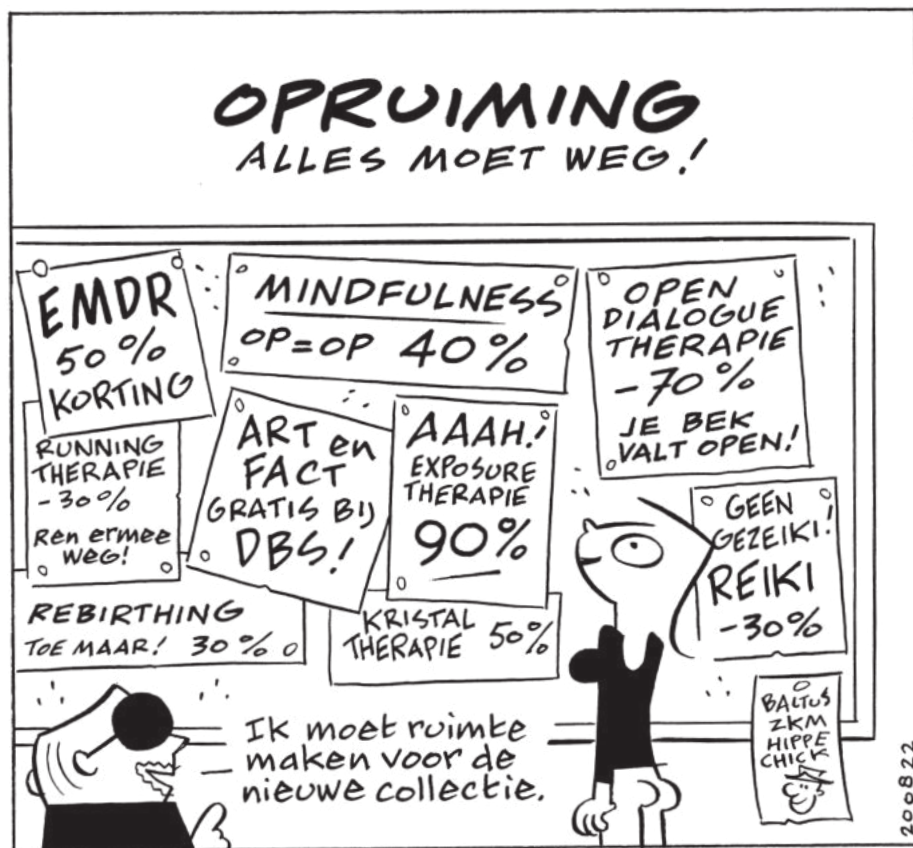 OPRUIMING
ALLES MOET WEG!
EMDR
50%
KORTING
MINDFULNESS
OP=OP 40%
OPEN
DIALOGUE
THERAPIE
-70%
JE BEK
VALT OPEN!
RUNNING
THERAPIE
-30%
Ren ermee
weg!
ART en
FACT
GRATIS BIJ
DBS!
AAAH!
EXPOSURE
THERAPIE
90%
GEEN
GEZEIKI!
REIKI
-30%
REBIRTHING
TOE MAAR! 30%
KRISTAL
THERAPIE 50%
BALTUS
ZKM
HIPPE
CHICK
Ik moet ruimte
maken voor de
nieuwe collectie.
200822